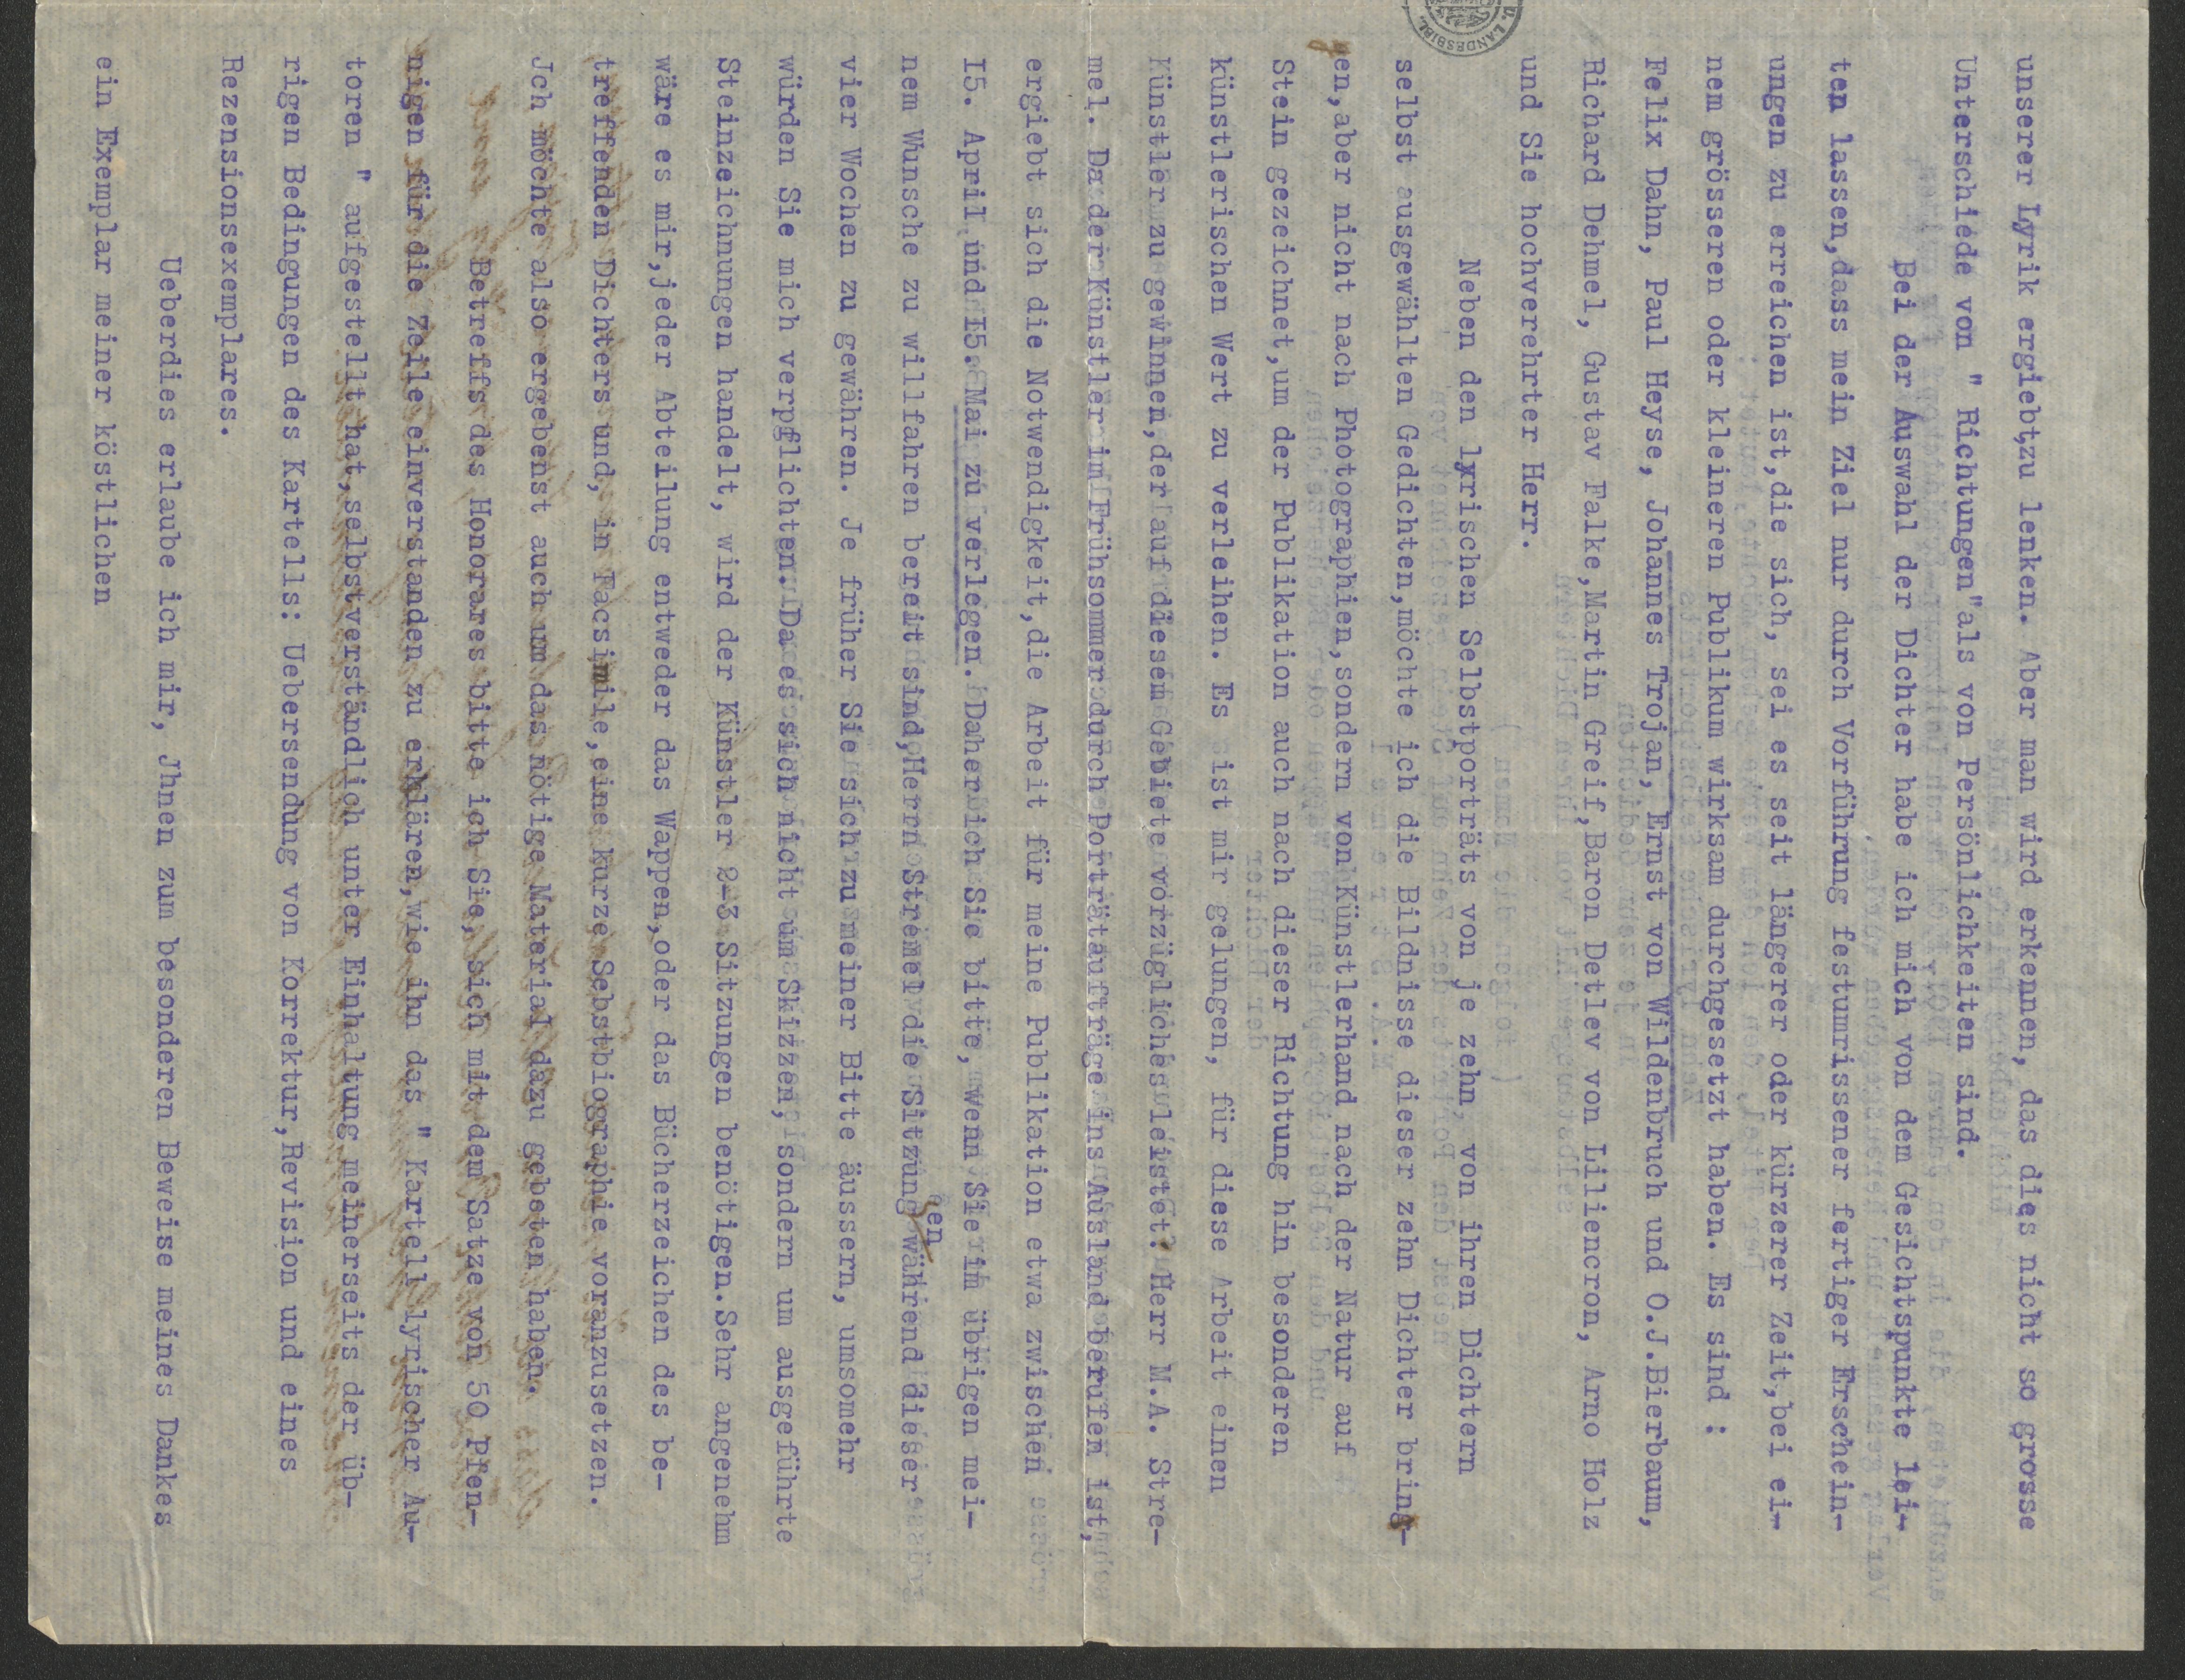 unserer Lyrik ergiebt,zu lenken. Aber man wird erkennen, das dies nicht so grosse
Unterschiede von " Richtungen"als von Persönlichkeiten sind.
Bei der Auswahl der Dichter habe ich mich von dem Gesichtspunkte lei-
ten lassen,dass mein Ziel nur durch Vorführung festumrissener fertiger Erschein-
ungen zu erreichen ist,die sich, sei es seit längerer oder kürzerer Zeit,bei ei-
nem grösseren oder kleineren Publikum wirksam durchgesetzt haben. Es sind :
Felix Dahn, Paul Heyse, Johannes Trojan, Ernst von Wildenbruch und O.J.Bierbaum,
Richard Dehmel, Gustav Falke,Martin Greif,Baron Detlev von Liliencron, Arno Holz
und Sie hochverehrter Herr.
Neben den lyrischen Selbstporträts von je zehn, von ihren Dichtern
selbst ausgewählten Gedichten,möchte ich die Bildnisse dieser zehn Dichter bring-
en,aber nicht nach Photographien,sondern von Künstlerhand nach der Natur auf
Stein gezeichnet,um der Publikation auch nach dieser Richtung hin besonderen
künstlerischen Wert zu verleihen. Es ist mir gelungen, für diese Arbeit einen
Künstler zu gewinnen,der auf diesem Gebiete vorzügliches leistet: Herr M.A. Stre-
mel. Da der Könstler im Frühsommer durch Porträtaufträge ins Ausland berufen ist,
ergiebt sich die Notwendigkeit,die Arbeit für meine Publikation etwa zwischen
I5. April und I5. Mai zu verlegen. Daher ich Sie bitte, wenn Sie im übrigen mei-
nem Wunsche zu willfahren bereit sind,Herrn Stremel die Sitzungen während dieser
vier Wochen zu gewähren. Je früher Sie sich zu meiner Bitte äussern, umsomehr
würden Sie mich verpflichten. Da es sich nicht um Skizzen, sondern um ausgeführte
Steinzeichnungen handelt, wird der Künstler 2-3 Sitzungen benötigen.Sehr angenehm
wäre es mir,jeder Abteilung entweder das Wappen,oder das Bücherzeichen des be-
treffenden Dichters und, in Facsimile,eine kurze Sebstbiographie voranzusetzen.
Jch möchte also ergebenst auch um das nötige Material dazu gebeten haben.
Betreffs des Honorares bitte ich Sie, sich mit dem Satze von 50 Pfen-
nigen für die Zeile einverstanden zu erklären,wie ihn das " Kartell lyrischer Au-
toren " aufgestellt hat,selbstverständlich unter Einhaltung meinerseits der üb-
rigen Bedingungen des Kartells: Uebersendung von Korrektur,Revision und eines
Rezensionsexemplares.
Ueberdies erlaube ich mir, Jhnen zum besonderen Beweise meines Dankes
ein Exemplar meiner köstlichen